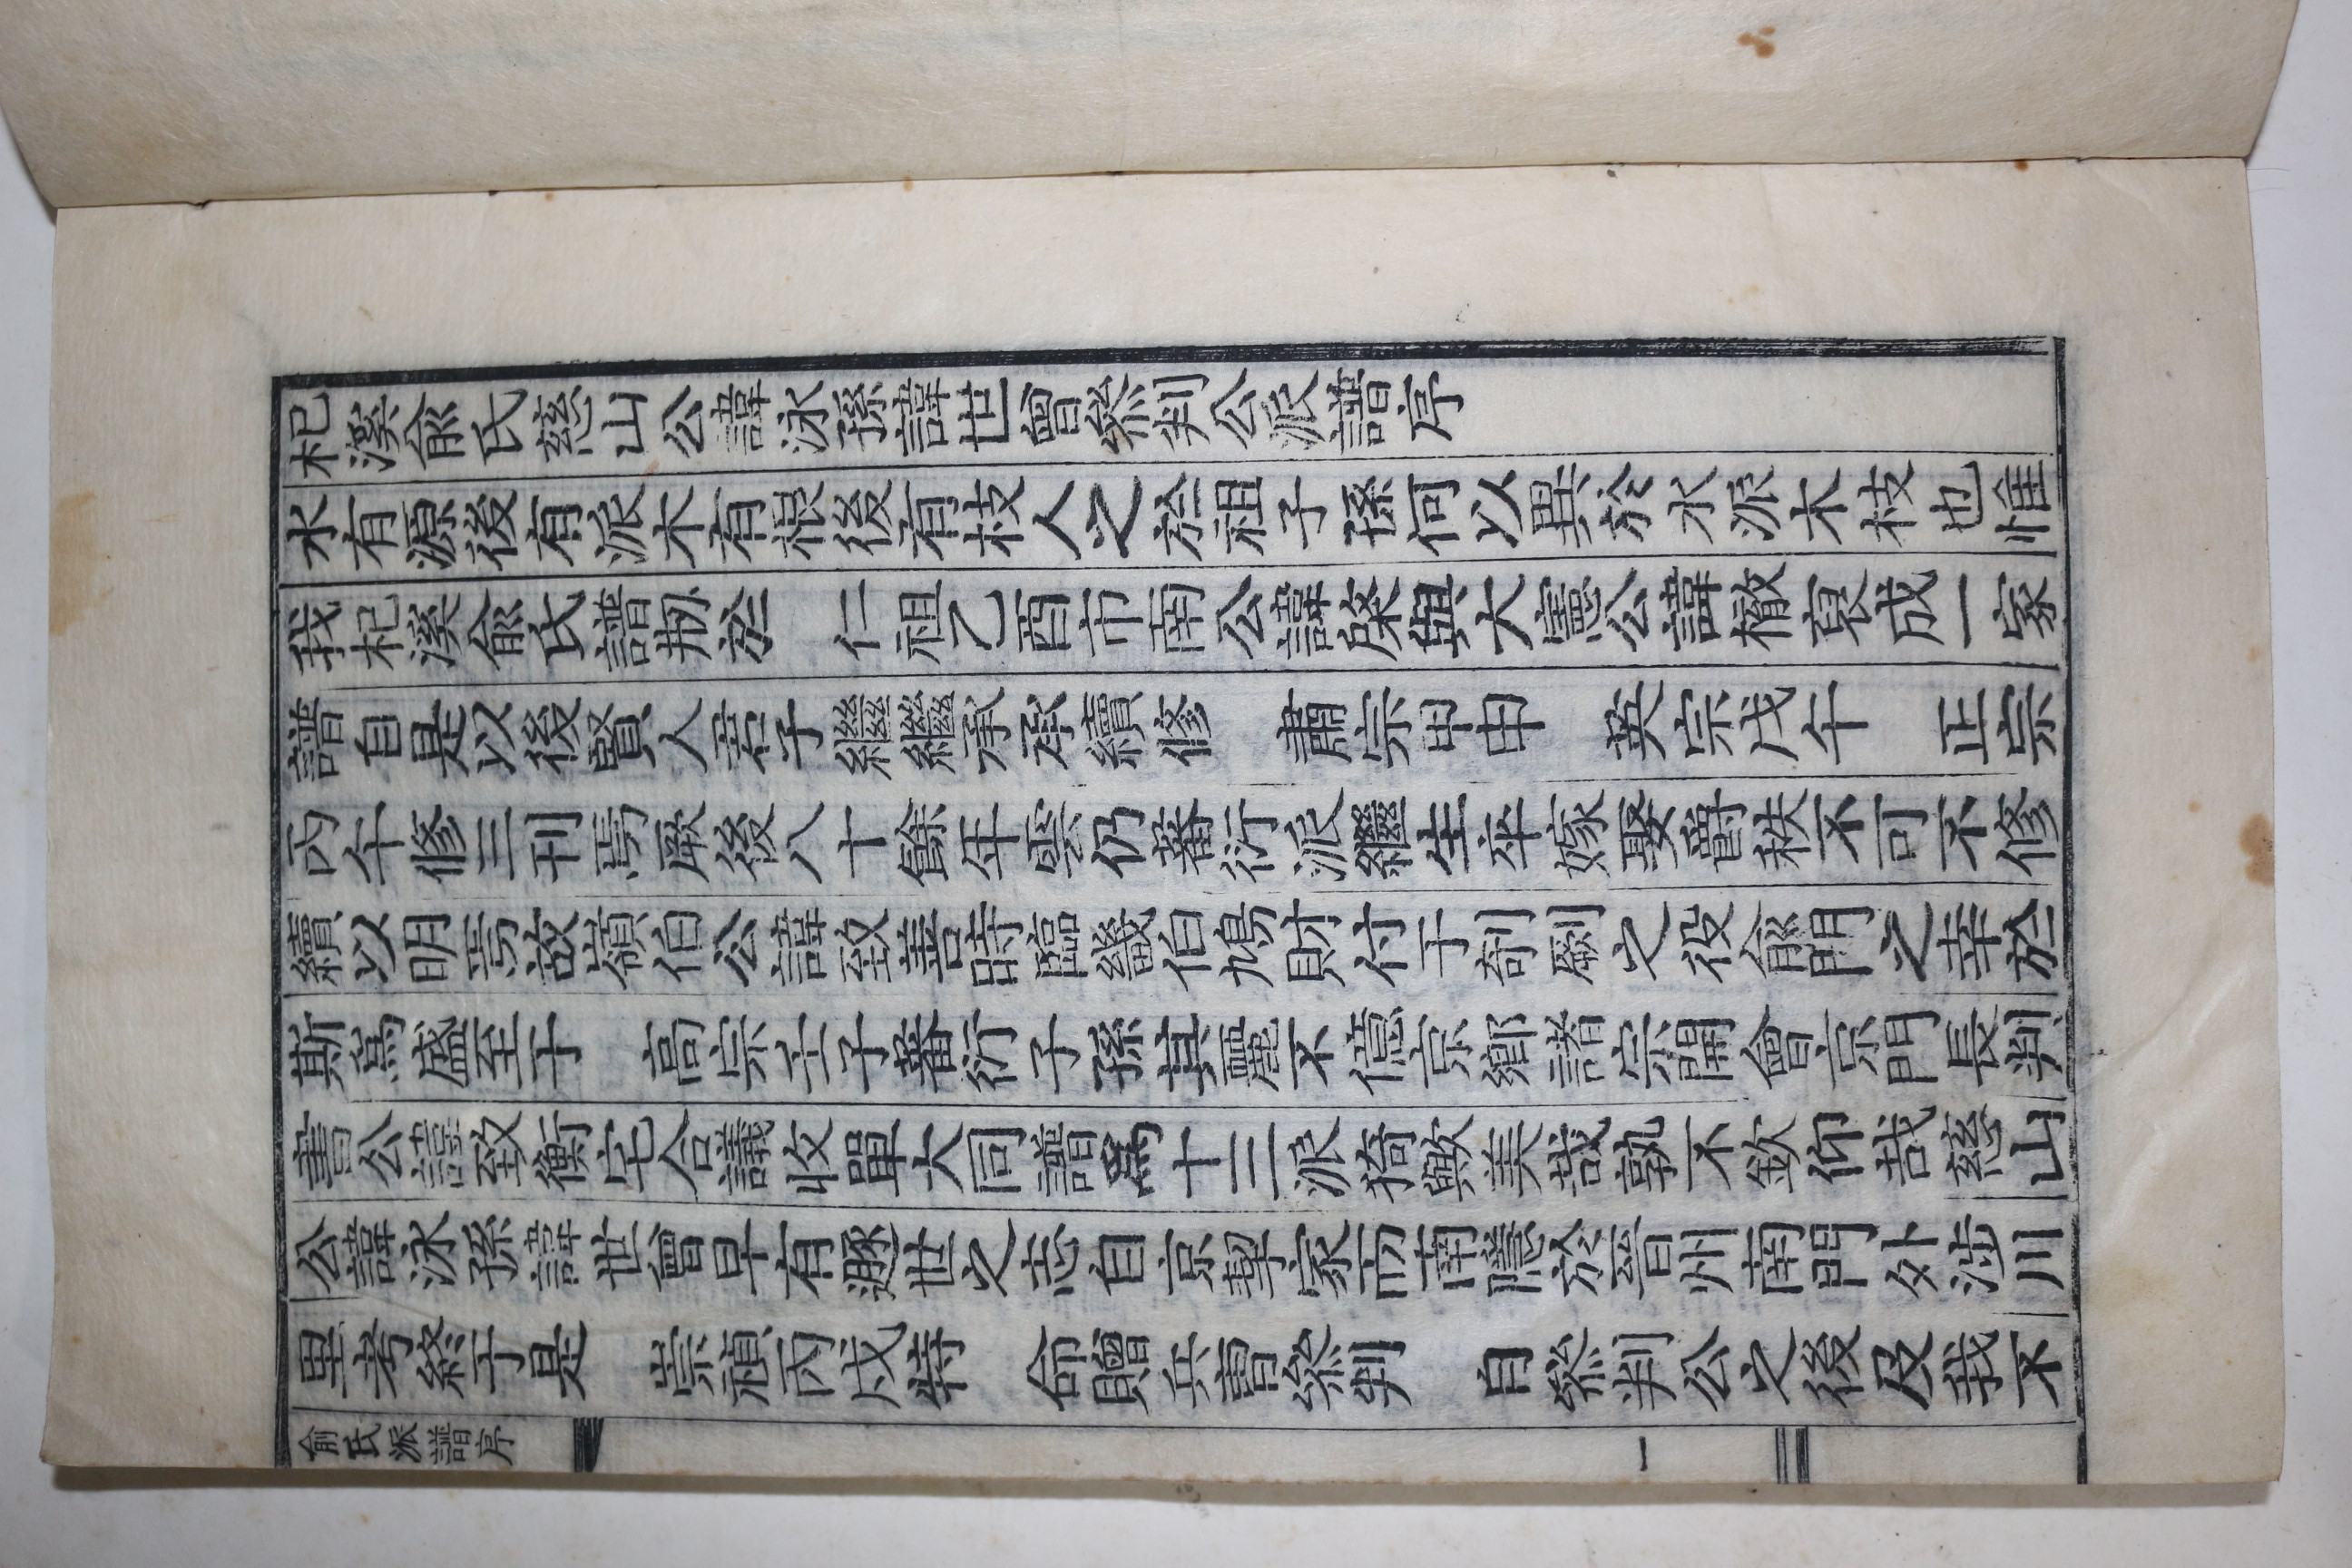 杞溪兪氏慈山公諱泳孫諱世曾叅判公派譜序
水有源後有派木有根後有枝人之於祖子孫何以異於水派木枝也惟
我杞溪兪氏譜刱於 仁祖乙酉市南公諱棨與大憲公諱㯙裒成一家
譜自是以後賢人君子繼繼承承續修 肅宗甲申 英宗戊午 正宗
丙午修三刊焉厥後八十餘年雲仍蕃衍派繼生卒嫁娶爵秩不可不修
續以明焉故嶺伯公諱致善時臨畿伯鳩財付于剞劂之役兪門之幸於
斯爲盛至于 高宗壬子蕃衍子孫其麗不億京鄉諸宗開會京門長判
書公諱致衡宅合議收單大同譜爲十三派猗歟美哉孰不欽仰哉慈山
公諱泳孫諱世曾早有遯世之志自京挈家而南隱於晉州南門外涉川
里考終于是 崇禎丙戌特 命贈兵曹叅判 自叅判公之後及我不
兪氏派譜序
一